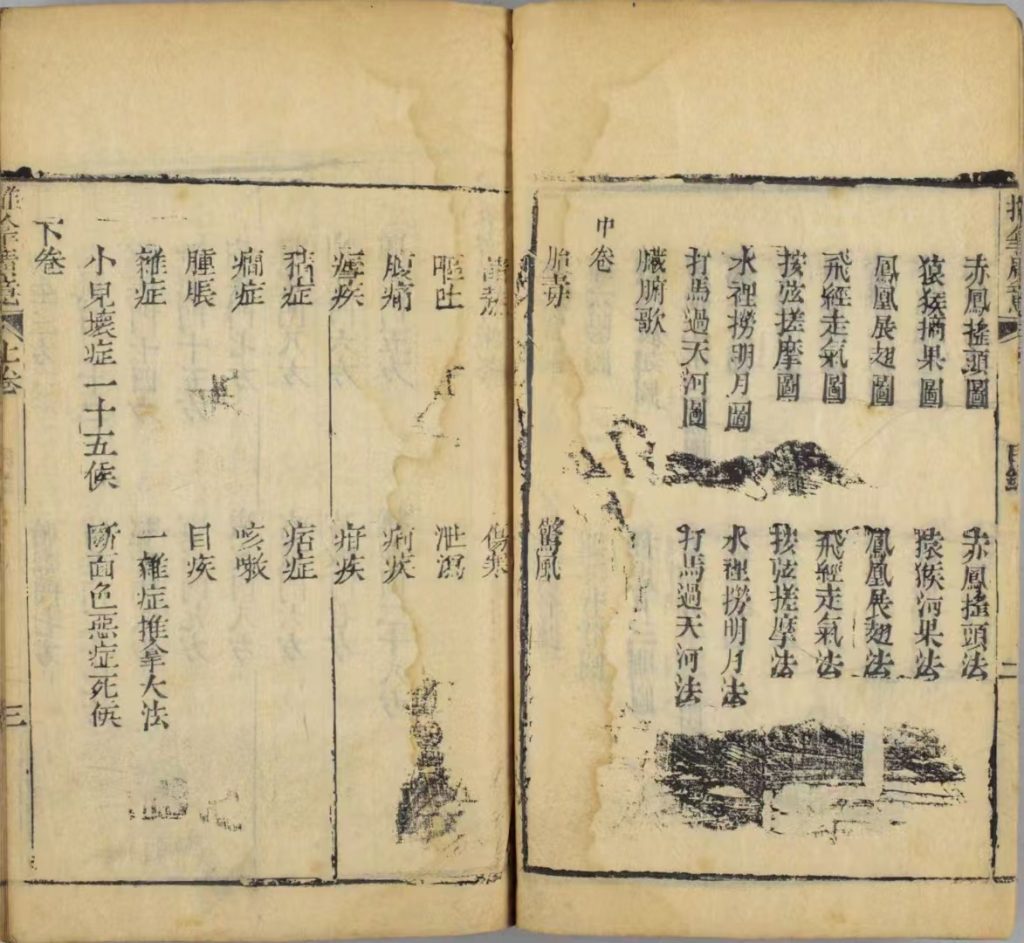 赤鳳搖頭圖
赤鳳搖頭法
猿猴摘果圖
猿猴摘果法
鳳凰展翅圖
鳳凰展翅法
飛經走氣圖
飛經走氣法
按弦搓摩圖
按弦搓摩法
水裡撈明月圖
水裡撈明月法
打馬過天河圖
打馬過天河法
臟腑歌
中卷
胎毒
驚風
傷寒
嘔吐
泄瀉
腹痛
痢疾
瘧疾
疳疾
積症
痞症
癇症
咳嗽
腫脹
目疾
雜症
一雜症推拿大法
小兒壞症一十五候
斷面色惡症死候
下卷
上卷
二
三